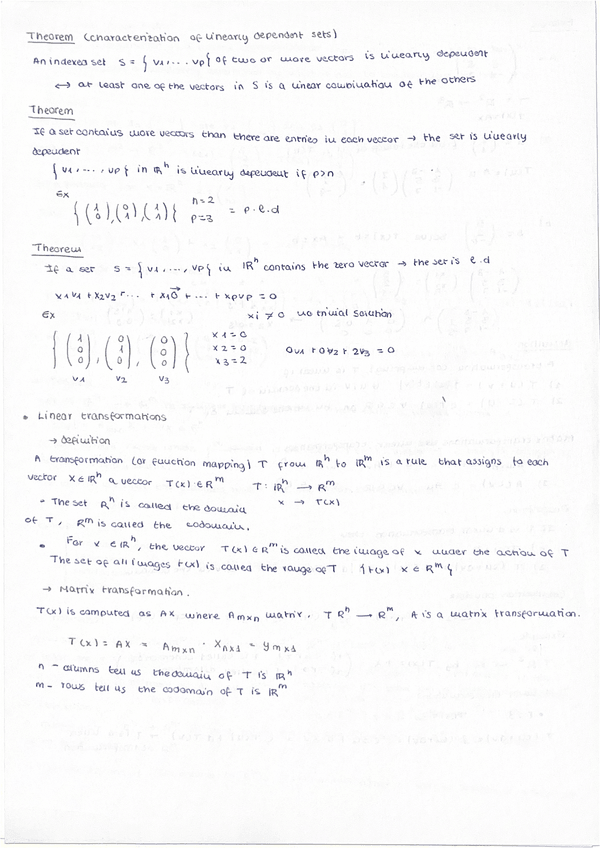 Theorem (characterization of linearly dependent sets)
An indexed set S = { v1, ... vp{ of two or more vectors is linearly dependent
↔ at least one of the vectors in S is a linear combination of the others
Theorem
If a set contains more vectors than there are entries in each vector → the set is linearly
dependent
{ v1, ..., vp} in ℝⁿ is linearly dependent if p>n
Ex
{ (1 0), (0 1), (1 1) } n=2 p=3 = p. l. d
Theorem
If a set S = { v1, ..., vp} in ℝⁿ contains the zero vector → the set is l.d
x1v1 + x2v2 + ... + x10⃗ + ... + xpvp = 0
Ex xi ≠ 0 no trivial solution
{ (1 0 0), (0 1 0), (0 0 0) } x1=0 x2=0 x3=2 0v1 + 0v2 + 2v3 = 0
v1 v2 v3
• Linear transformations
→ definition
A transformation (or function mapping) T from ℝⁿ to ℝᵐ is a rule that assigns to each
vector x∈ℝⁿ a vector T(x)∈ℝᵐ T: ℝⁿ → ℝᵐ
• The set ℝⁿ is called the domain x → T(x)
of T, ℝᵐ is called the codomain.
• For x ∈ℝⁿ, the vector T(x)∈ℝᵐ is called the image of x under the action of T
The set of all images T(x) is called the range of T {T(x) x∈ℝᵐ{
→ Matrix transformation.
T(x) is computed as Ax where Amxn matrix. T ℝⁿ → ℝᵐ, A is a matrix transformation.
T(x) = Ax = Amxn · Xnx1 = ymx1
n - columns tell us the domain of T is ℝⁿ
m - rows tell us the codomain of T is ℝᵐ